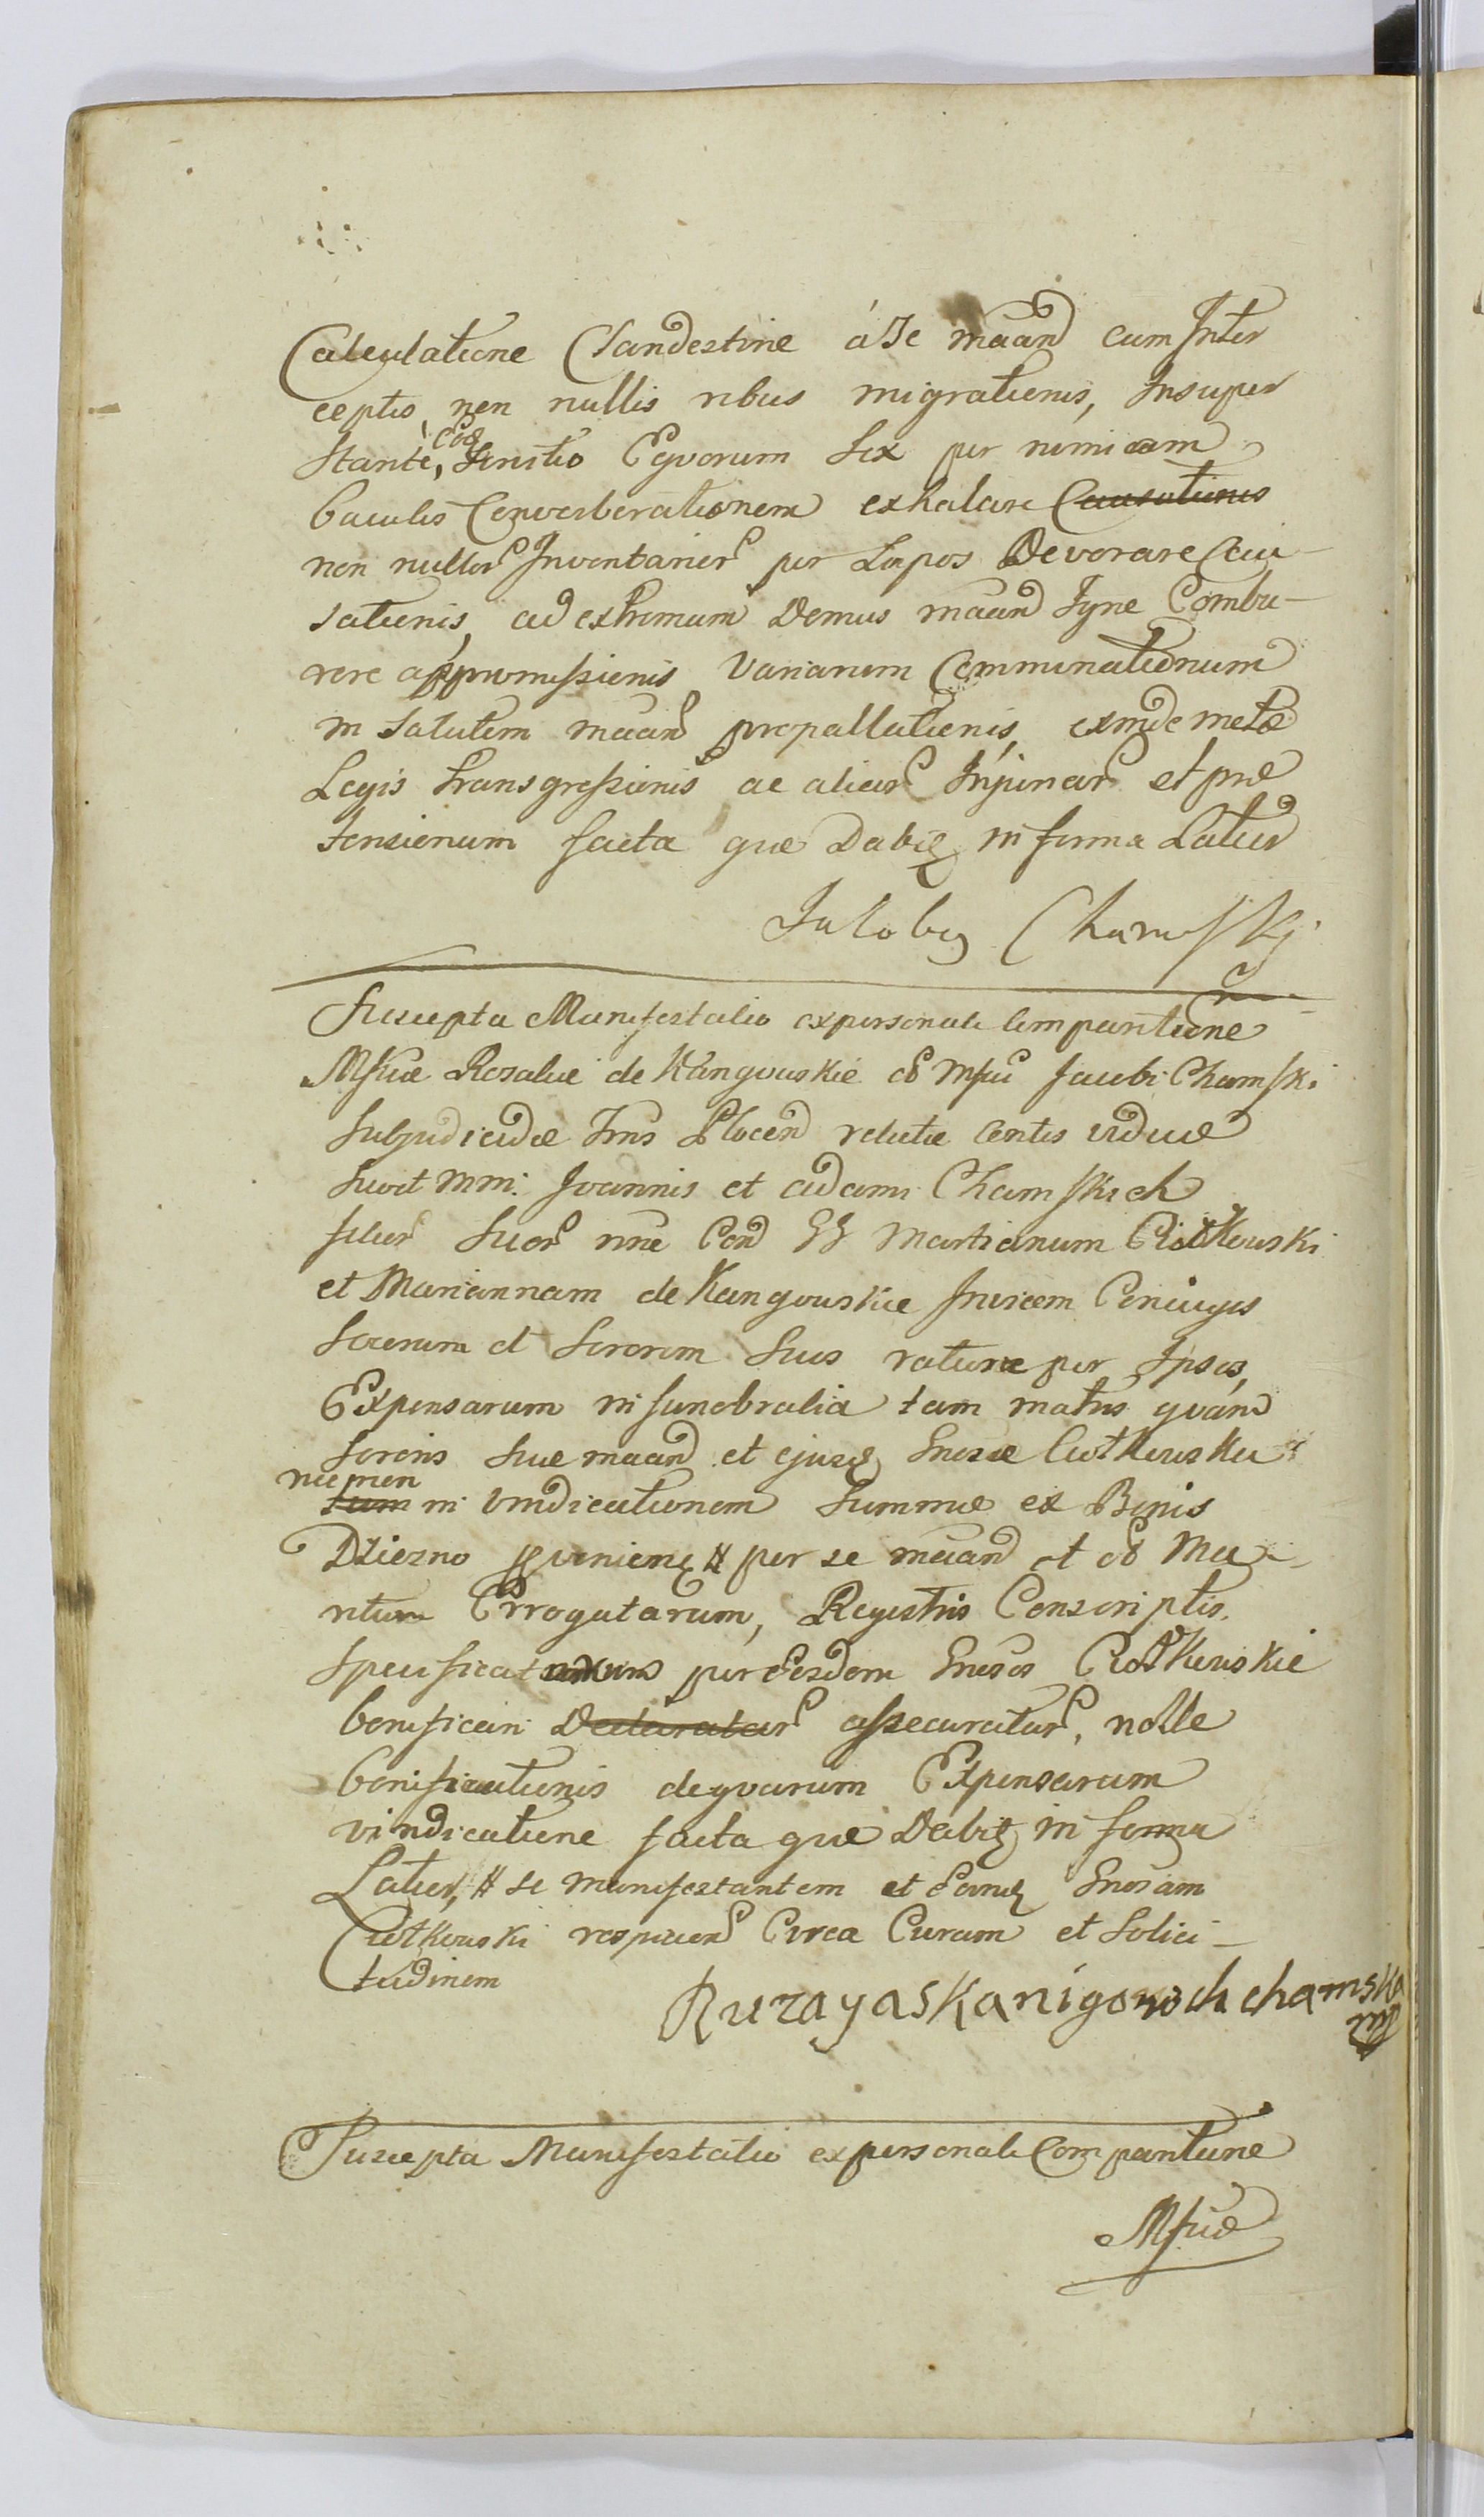 Calculatione Clandestine á Se maand cum Inter
ceptis, non nullis rebus migrationis, Insuper
Stante, eod Servitio Eqvorum Sex per nimiam
baculis Converberationem exhalare Causationis
non nullor Inventarior per Lupos Devorare Cau-
sationis, ad extremum Domus maand Igne Combu-
rere appromissionis Variarum Comminationum
in Salutem maand propallationis, exinde metæ
Legis transgressionis ac aliar Injuriar et præ
tensionum facta quæ Dabit in forma Latior
Jakobus Chamski
Suscepta Manifestatio ex personali Comparitione
Mficæ Rosaliæ de Kangowskie et Mfici Jacobi Chamski
Subjudicidæ Tris Plocen relictæ Contis viduæ
Suo et Mm. Joannis et Adami Chamskich
filior Suor nne Con GG Martianum Ciotkowski
et Mariannam de Kangowskie Invicem Coniuges
Socerum et Sororem Suos ratione per Ipsos,
Expensarum in funebralia tam matris quam
Sororis Suæ maand et ejusd Gnosæ Ciotkowska
nec non
tum in vindicationem Summæ ex Bonis
Dziezno pvenien # per se maand et ob Ma-
ritum Errogatarum, Regestris Conscriptis
Specificatarum per Eosdem Gnosos Ciotkowskie
bonificari Declaratar assecuratar, nolle
bonificationis deqvarum Expensarum
vindicatione facta quæ Dabit in forma
Latior, # se manifestantem et Eand Gnosam
Ciotkowski respicien Circa Curam et Solici-
tudinem
Ruzaya s Kanigowsch chamska
mp
Suscepta Manifestatio ex personali Comparitione
Mficæ